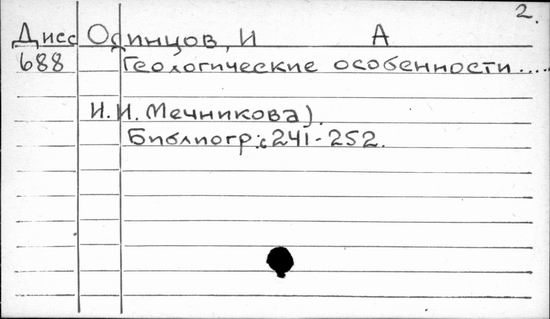 2.
Дисс Одинцов, И А
688 Геологические особенности.....
И.И. Мечникова).
Библиогр: с 241-252.